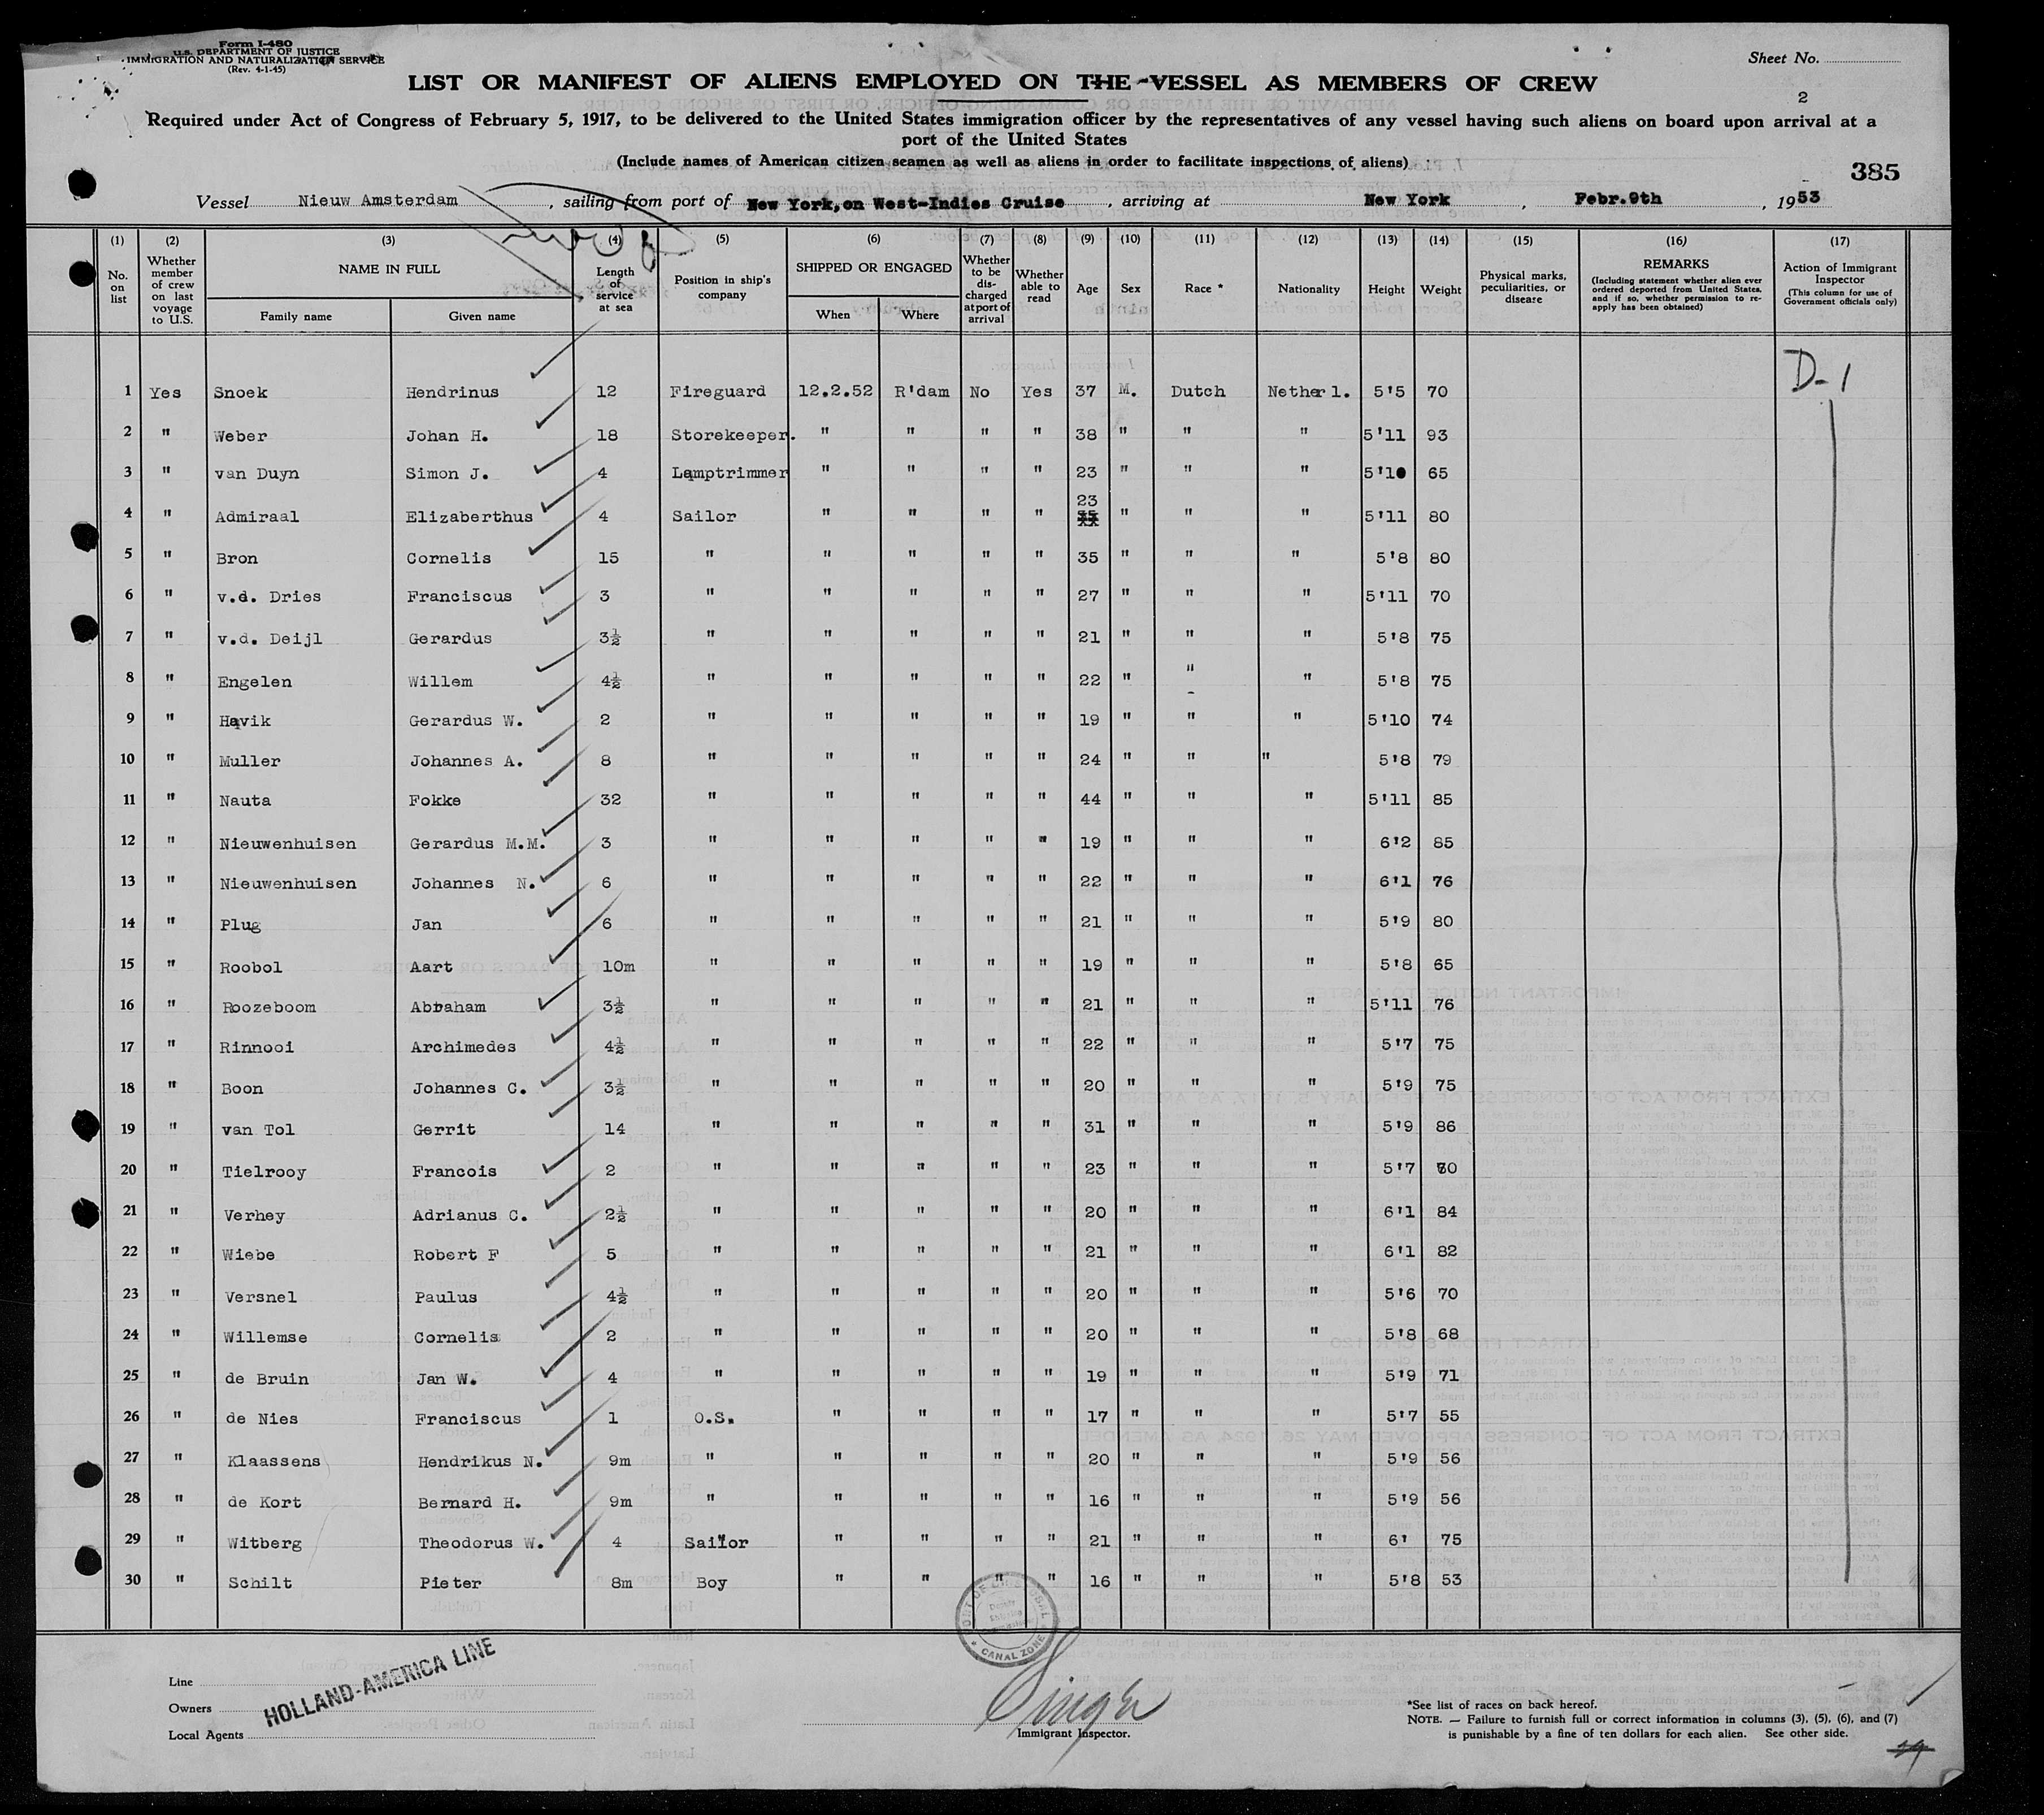 Form I-480
U.S. DEPARTMENT OF JUSTICE
IMMIGRATION AND NATURALIZATION SERVICE
(Rev. 4-1-45)
Sheet No.
LIST OR MANIFEST OF ALIENS EMPLOYED ON THE VESSEL AS MEMBERS OF CREW
2
Required under Act of Congress of February 5, 1917, to be delivered to the United States immigration officer by the representatives of any vessel having such aliens on board upon arrival at a
port of the United States
(Include names of American citizen seamen as well as aliens in order to facilitate inspections of aliens)
385
Vessel Nieuw Amsterdam, sailing from port of New York,on West-Indies Cruise, arriving at New York, Febr.9th, 1953
(1) (2) (3) (4) (5) (6) (7) (8) (9) (10) (11) (12) (13) (14) (15) (16) (17)
No. on list
Whether member of crew on last voyage to U.S.
NAME IN FULL
Family name
Given name
Length of service at sea
Position in ship's company
SHIPPED OR ENGAGED
When
Where
Whether to be discharged at port of arrival
Whether able to read
Age
Sex
Race *
Nationality
Height
Weight
Physical marks, peculiarities, or disease
REMARKS
(Including statement whether alien ever ordered deported from United States, and if so, whether permission to re-apply has been obtained)
Action of Immigrant Inspector
(This column for use of Government officials only)
D-1
1 Yes Snoek Hendrinus 12 Fireguard 12.2.52 R'dam No Yes 37 M. Dutch Netherl. 5'5 70
2 " Weber Johan H. 18 Storekeeper. " " " " 38 " " " 5'11 93
3 " van Duyn Simon J. 4 Lamptrimmer " " " " 23 " " " 5'10 65
4 " Admiraal Elizaberthus 4 Sailor " " " " 23 " " " 5'11 80
5 " Bron Cornelis 15 " " " " " 35 " " " 5'8 80
6 " v.d. Dries Franciscus 3 " " " " " 27 " " " 5'11 70
7 " v.d. Deijl Gerardus 3½ " " " " " 21 " " " 5'8 75
8 " Engelen Willem 4½ " " " " " 22 " " " 5'8 75
9 " Havik Gerardus W. 2 " " " " " 19 " " " 5'10 74
10 " Muller Johannes A. 8 " " " " " 24 " " " 5'8 79
11 " Nauta Fokke 32 " " " " " 44 " " " 5'11 85
12 " Nieuwenhuisen Gerardus M.M. 3 " " " " " 19 " " " 6'2 85
13 " Nieuwenhuisen Johannes N. 6 " " " " " 22 " " " 6'1 76
14 " Plug Jan 6 " " " " " 21 " " " 5'9 80
15 " Roobol Aart 10m " " " " " 19 " " " 5'8 65
16 " Roozeboom Abraham 3½ " " " " " 21 " " " 5'11 76
17 " Rinnooi Archimedes 4½ " " " " " 22 " " " 5'7 75
18 " Boon Johannes C. 3½ " " " " " 20 " " " 5'9 75
19 " van Tol Gerrit 14 " " " " " 31 " " " 5'9 86
20 " Tielrooy Francois 2 " " " " " 23 " " " 5'7 70
21 " Verhey Adrianus C. 2½ " " " " " 20 " " " 6'1 84
22 " Wiebe Robert F 5 " " " " " 21 " " " 6'1 82
23 " Versnel Paulus 4½ " " " " " 20 " " " 5'6 70
24 " Willemse Cornelis 2 " " " " " 20 " " " 5'8 68
25 " de Bruin Jan W. 4 " " " " " 19 " " " 5'9 71
26 " de Nies Franciscus 1 O.S. " " " " 17 " " " 5'7 55
27 " Klaassens Hendrikus N. 9m " " " " " 20 " " " 5'9 56
28 " de Kort Bernard H. 9m " " " " " 16 " " " 5'9 56
29 " Witberg Theodorus W. 4 Sailor " " " " 21 " " " 6' 75
30 " Schilt Pieter 8m Boy " " " " 16 " " " 5'8 53
PORT OF CRISTOBAL
CANAL ZONE
Line
Owners
Local Agents
HOLLAND-AMERICA LINE
Immigrant Inspector.
*See list of races on back hereof.
NOTE. — Failure to furnish full or correct information in columns (3), (5), (6), and (7)
is punishable by a fine of ten dollars for each alien. See other side.